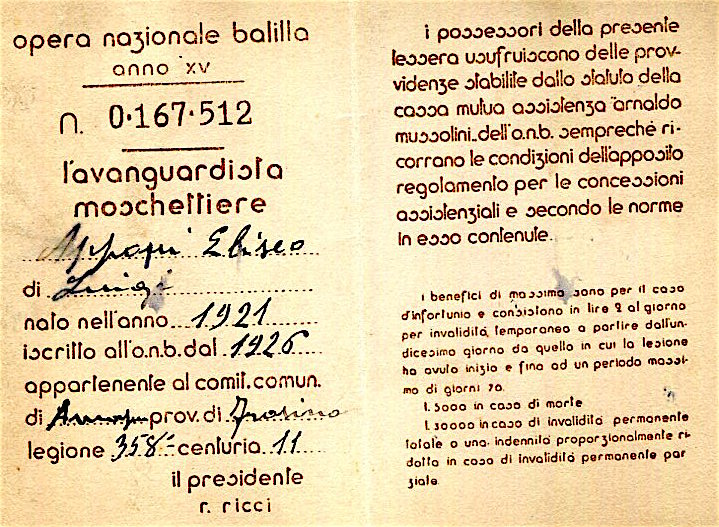 opera nazionale balilla
anno xv
n. 0·167·512
l'avanguardista
moschettiere
Eliseo
di Luigi
nato nell'anno 1921
iscritto all'o.n.b. dal 1926
appartenente al comit. comun.
di prov. di
legione 358ª centuria 11
il presidente
r. ricci
i possessori della presente
tessera usufruiscono delle prov-
videnze stabilite dallo statuto della
cassa mutua assistenza "arnaldo
mussolini" dell'o.n.b. sempreché ri-
corrano le condizioni dell'apposito
regolamento per le concessioni
assistenziali e secondo le norme
in esso contenute.
i benefici di massima sono per il caso
d'infortunio e consistono in lire 2 al giorno
per invalidità temporanea a partire dall'un-
dicesimo giorno da quello in cui la lesione
ha avuto inizio e fino ad un periodo massi-
mo di giorni 70.
l. 5000 in caso di morte
l. 30000 in caso di invalidità permanente
totale o una indennità proporzionalmente ri-
dotta in caso di invalidità permanente par
ziale.